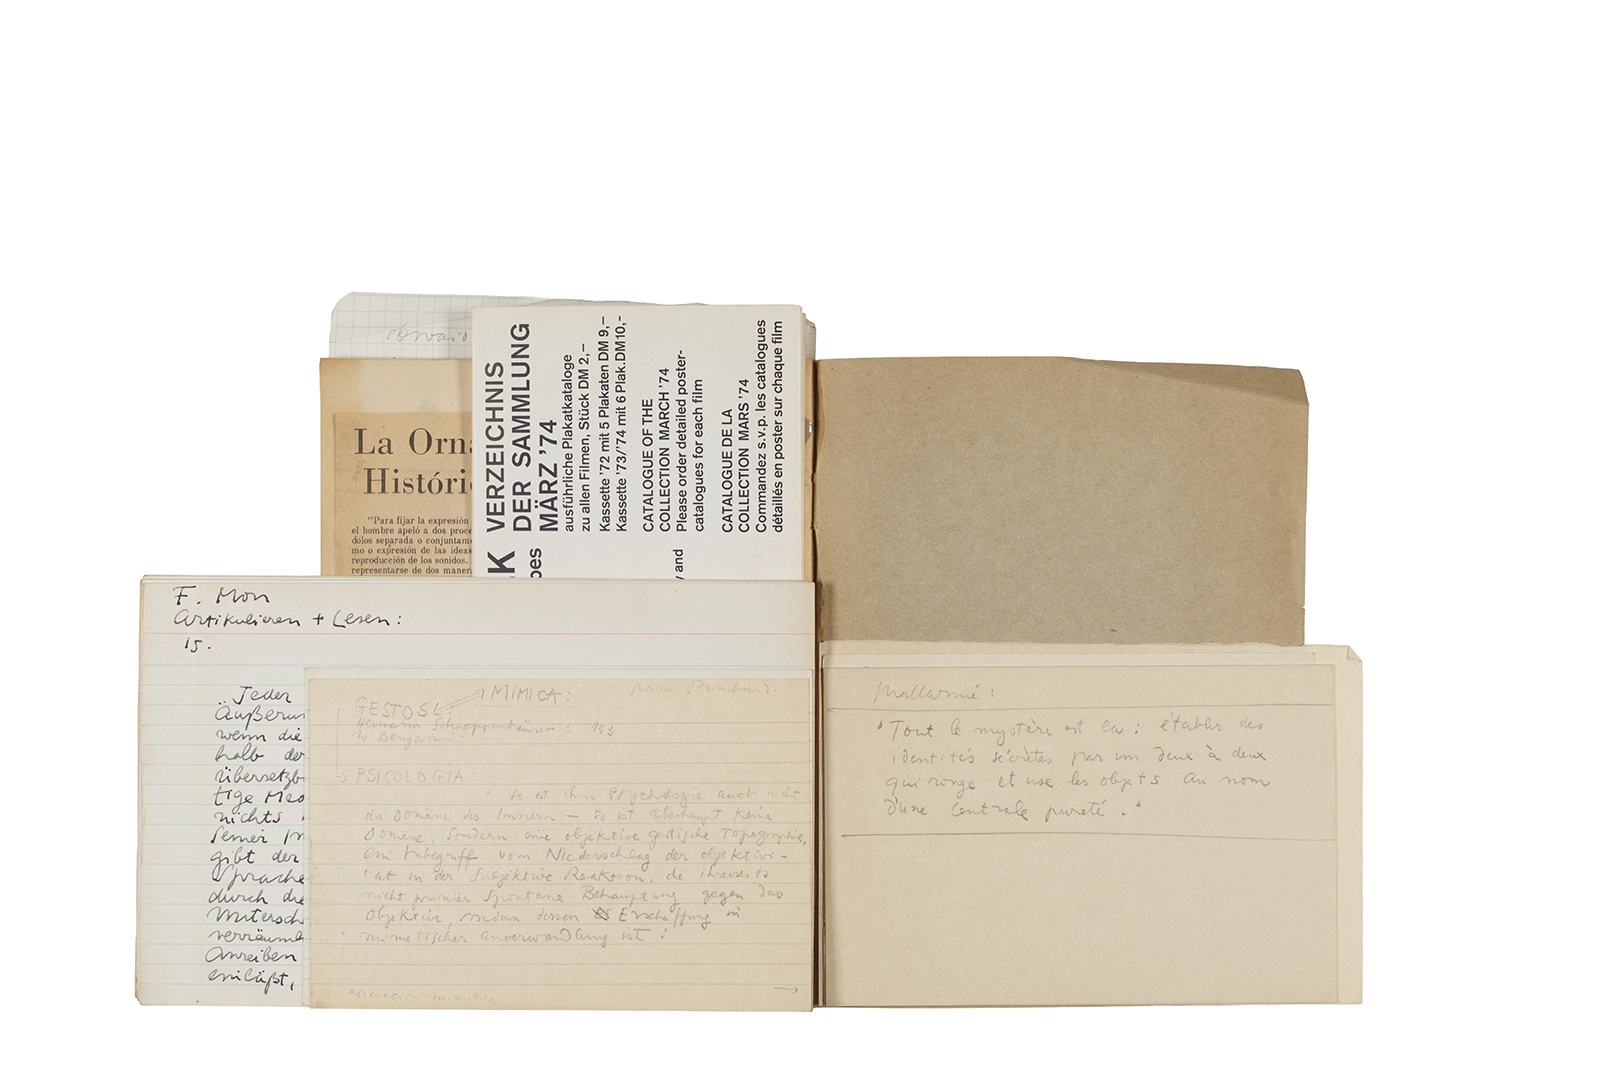 VERZEICHNIS
DER SAMMLUNG
MÄRZ '74
ausführliche Plakatkataloge
zu allen Filmen, Stück DM 2,–
Kassette '72 mit 5 Plakaten DM 9,–
Kassette '73/'74 mit 6 Plak.DM10,–
CATALOGUE OF THE
COLLECTION MARCH '74
Please order detailed poster-
catalogues for each film
CATALOGUE DE LA
COLLECTION MARS '74
Commandez s.v.p. les catalogues
détaillés en poster sur chaque film
K
pes
y and
La Orna
Históri
"Para fijar la expresión
el hombre apeló a dos proce
dolos separada o conjuntame
mo o expresión de las ideas
reproducción de los sonidos.
representarse de dos maner
F. Mon
Artikulieren + Lesen:
15.
Jeder
Äußerun
wenn die
halb der
übersetzb
tige Mes
nichts
seiner pr
gibt der
Sprache
durch die
Untersch
verräuml
Anreiben
einläßt,
MIMICA:
para
GESTOS
Hermann Schweppenhäuser: 155
Benjamin:
PSICOLOGÍA:
" So ist ihm Psychologie auch nicht
die Domäne des Innern – Es ist überhaupt keine
Domäne, sondern eine objektive gestische Topographie,
ein Inbegriff vom Niederschlag der objektivi-
tät in der Subjektive Reaktion, die ihrerseits
nicht primär spontane Behauptung gegen das
Objektive, sondern dessen Erschaffung in
mimetischer Anverwandlung ist.
mimetica
Mallarmé:
"Tout le mystère est là: établir des
identités sécrètes par un deux à deux
qui ronge et use les objets au nom
d'une centrale pureté."